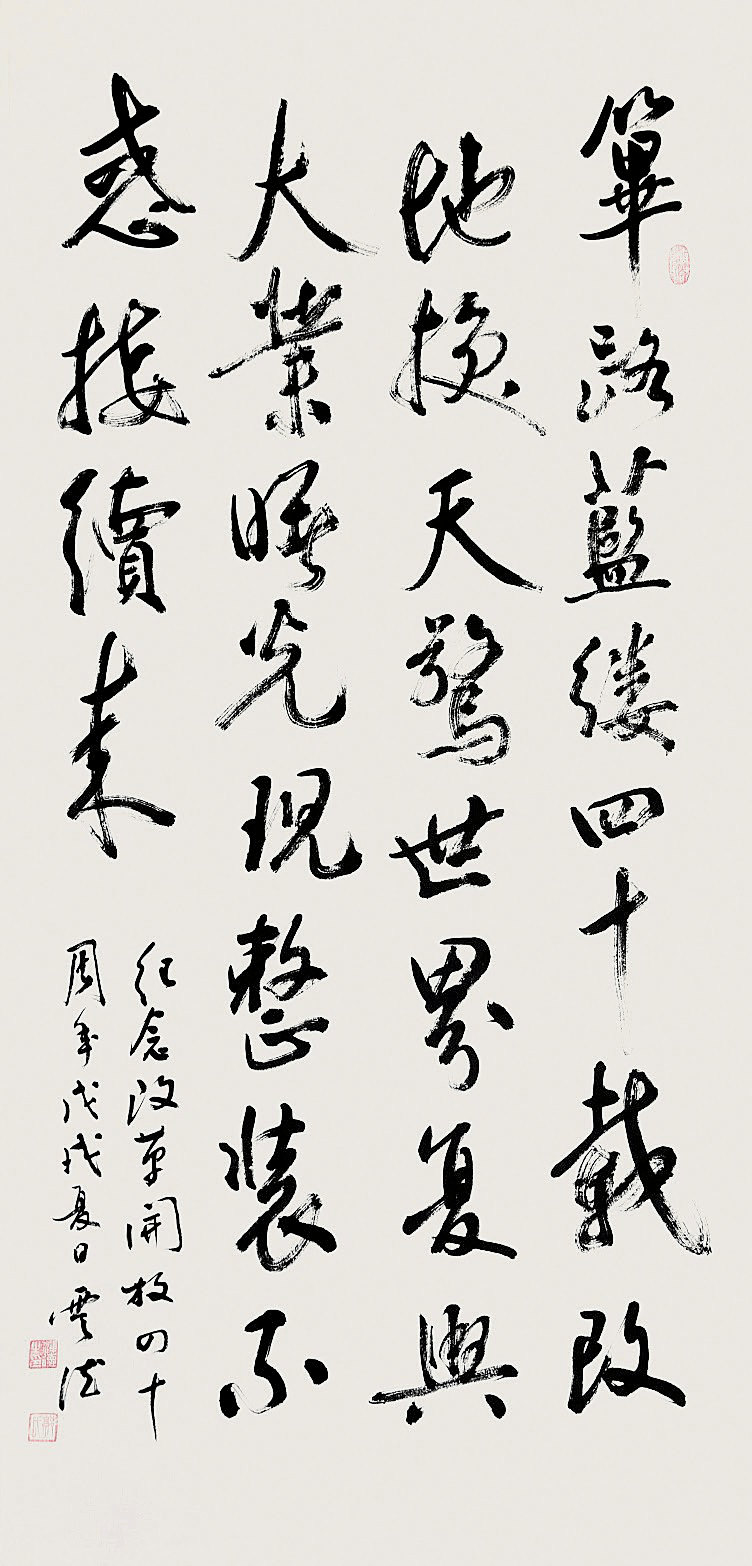 篳路藍缕四十載改
地換天驚世界复興
大業曙光現整装不
惑接續来
纪念改革開放四十
周年戊戌夏日雲